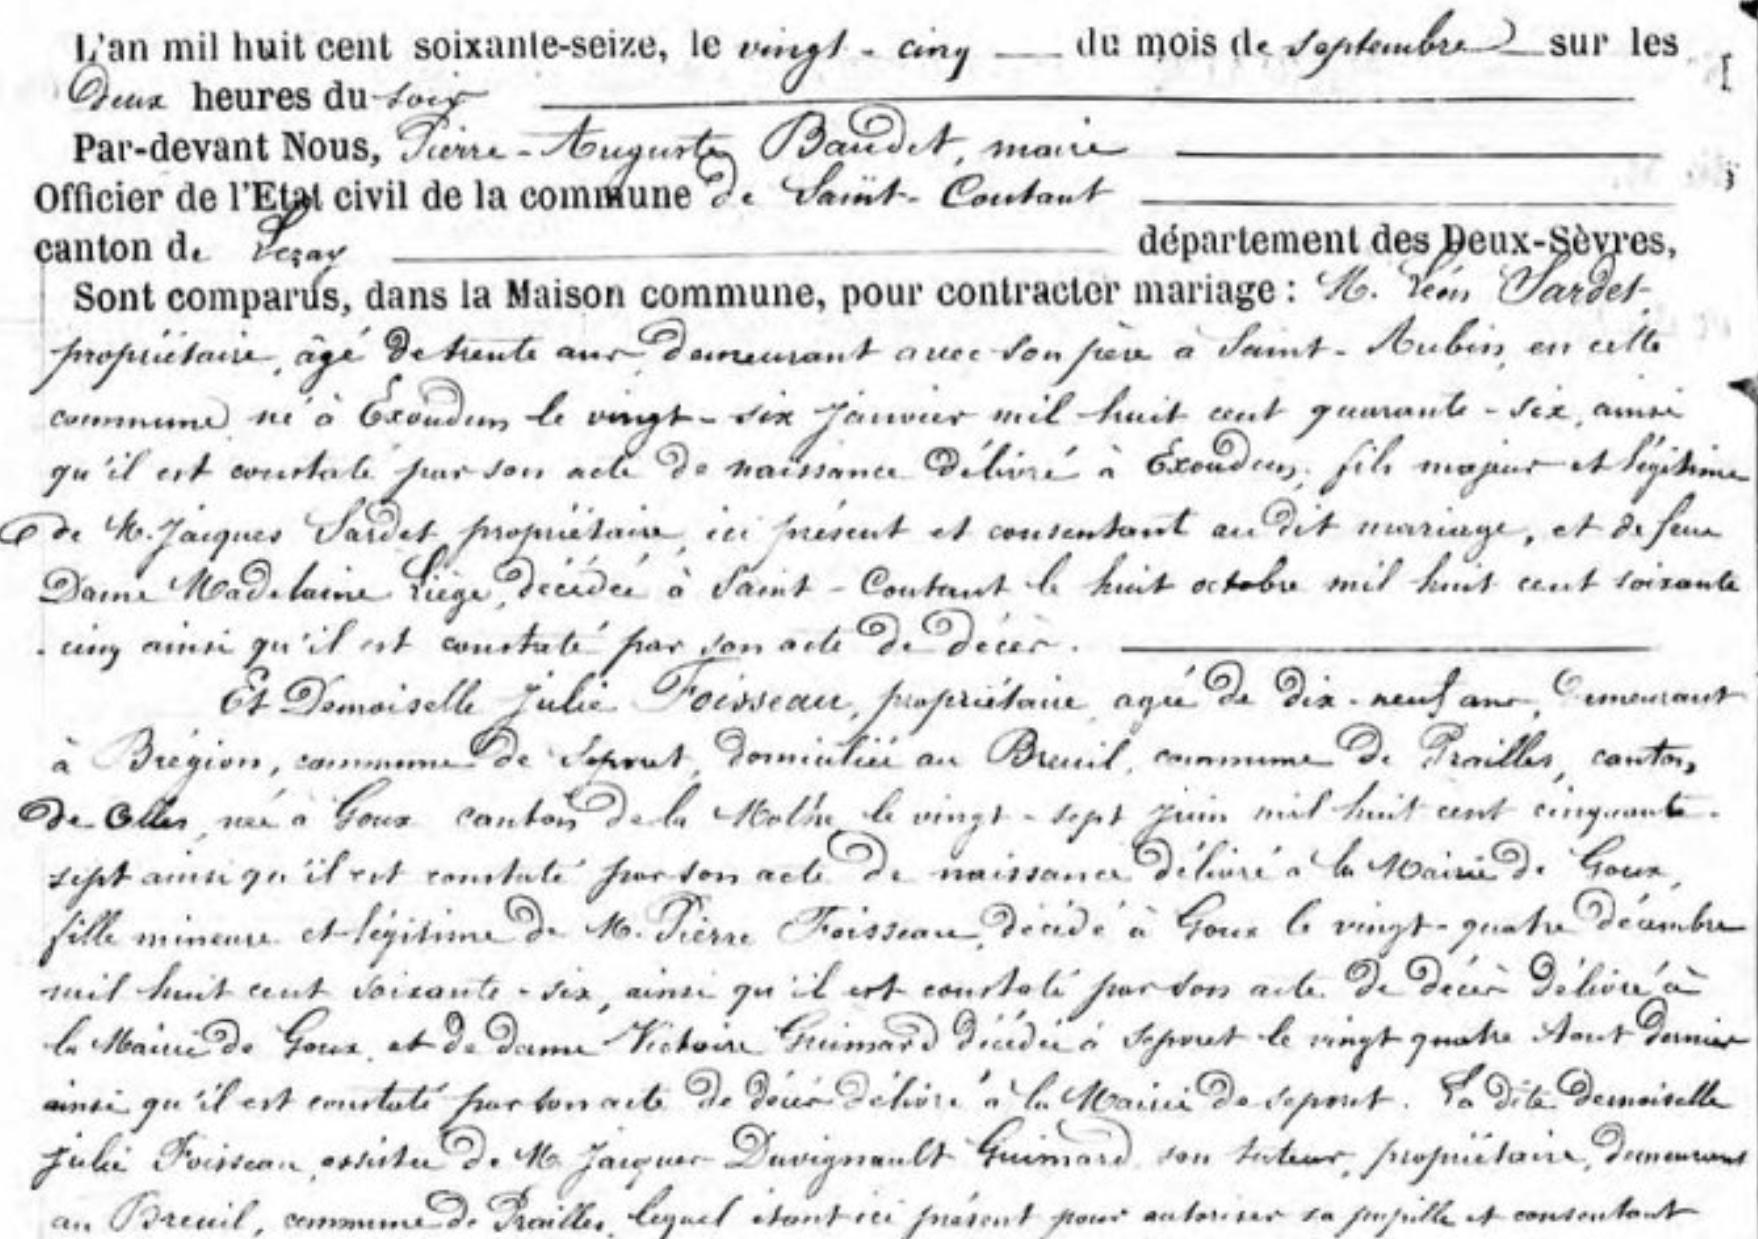 L'an mil huit cent soixante-seize, le vingt-cinq du mois de septembre sur les
Deux heures du soir
Par-devant Nous, Pierre-Auguste Baudet, maire
Officier de l'Etat civil de la commune de Saint-Coutant
canton de Lezay département des Deux-Sèvres,
Sont comparus, dans la Maison commune, pour contracter mariage : M. Léon Sardet
propriétaire, âgé de trente ans demeurant avec son père à Saint-Aubin, en cette
commune né à Exoudun le vingt-six janvier mil huit cent quarante-six, ainsi
qu'il est constaté par son acte de naissance délivré à Exoudun, fils majeur et légitime
de M. Jacques Sardet propriétaire, ici présent et consentant au dit mariage, et de feue
Dame Madelaine Liège, décédée à Saint-Coutant le huit octobre mil huit cent soixante
cinq ainsi qu'il est constaté par son acte de décès.
Et Demoiselle Julie Foisseau, propriétaire, agée de dix-neuf ans, Demeurant
à Brégion, commune de Sepvret, domiciliée au Breuil, commune de Prailles, canton
de Celles, née à Goux canton de la Mothe le vingt-sept juin mil huit cent cinquante-
sept ainsi qu'il est constaté par son acte de naissance délivré à la Mairie de Goux,
fille mineure et légitime de M. Pierre Foisseau, décédé à Goux le vingt-quatre décembre
mil huit cent soixante-six, ainsi qu'il est constaté par son acte de décès délivré à
la Mairie de Goux, et de dame Victoire Guimard décédée à Sepvret le vingt quatre Aout dernier
ainsi qu'il est constaté par son acte de décès délivré à la Mairie de Sepvret. La dite demoiselle
Julie Foisseau assistée de M. Jacques Duvignault Guimard, son tuteur, propriétaire, demeurant
au Breuil, commune de Prailles, lequel étant ici présent pour autoriser sa pupille et consentant